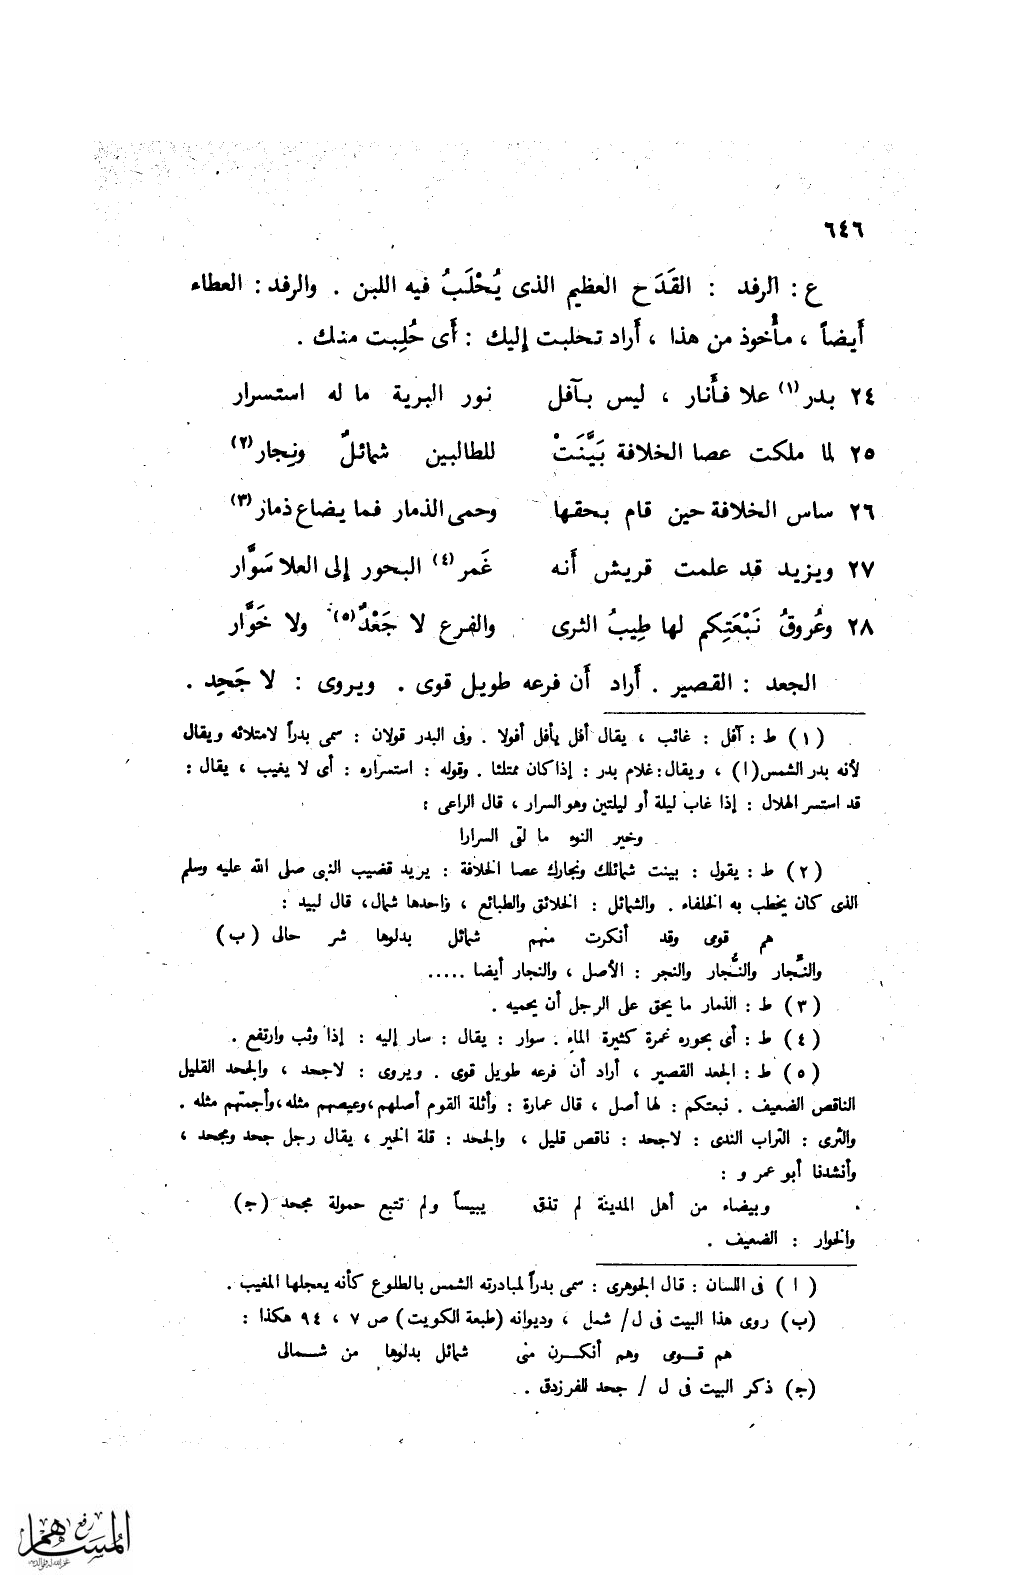 ٦٤٦
ع : الرفد : القَدَح العظيم الذى يُحْلَبُ فيه اللبن . والرفد : العطاء
أَيضاً ، مأْخوذ من هذا ، أَراد تحلبت إليك : أَى حُلِبت منك .
٢٤ بدر (١) علا فأَنار ، ليس بآفل نور البرية ما له استسرار
٢٥ لما ملكت عصا الخلافة بَيَّنَتْ للطالبين شمائلٌ ونِجار (٢)
٢٦ ساس الخلافة حين قام بحقها وحمى الذمار فما يضاع ذمار (٣)
٢٧ ويزيد قد علمت قريش أَنه غَمر (٤) البحور إلى العلا سَوَّار
٢٨ وعُروقُ نَبْعَتِكم لها طِيبُ الثرى والفرع لا جَعْدٌ (٥) ولا خَوَّار
الجعد : القصير . أَراد أَن فرعه طويل قوى . ويروى : لا جَحِد .
(١) ط : آفل : غائب ، يقال أفل يأفل أفولا . وفى البدر قولان : سمى بدراً لامتلائه ويقال
لأنه بدر الشمس (ا) ، ويقال : غلام بدر : إذا كان ممتلئا . وقوله : استسراره : أى لا يغيب ، يقال :
قد استسر الهلال : إذا غاب ليلة أو ليلتين وهو السرار ، قال الراعى :
وخير النوء ما لقى السرارا
(٢) ط : يقول : بينت شمائلك ونجارك عصا الخلافة : يريد قضيب النبى صلى الله عليه وسلم
الذى كان يخطب به الخلفاء . والشمائل : الخلائق والطبائع ، واحدها شمال ، قال لبيد :
هم قومى وقد أنكرت منهم شمائل بدلوها شر حالى (ب)
والنِّجار والنُّجار والنجر : الأصل ، والنجار أيضا .....
(٣) ط : الذمار ما يحق على الرجل أن يحميه .
(٤) ط : أى بحوره غمرة كثيرة الماء . سوار : يقال : سار إليه : إذا وثب وارتفع .
(٥) ط : الجعد القصير ، أراد أن فرعه طويل قوى . ويروى : لاجحد ، والجحد القليل
الناقص الضعيف . نبعتكم : لها أصل ، قال عمارة : وأثلة القوم أصلهم ، وعيصهم مثله ، وأجمتهم مثله .
والثرى : التراب الندى : لاجحد : ناقص قليل ، والجحد : قلة الخير ، يقال رجل جحد ومجحد ،
وأنشدنا أبو عمر و :
وبيضاء من أهل المدينة لم تذق يبيساً ولم تتبع حمولة مجحد (ج)
والخوار : الضعيف .
(ا) فى اللسان : قال الجوهرى : سمى بدراً لمبادرته الشمس بالطلوع كأنه يعجلها المغيب .
(ب) روى هذا البيت فى ل/ شمل ، وديوانه (طبعة الكويت) ص ٧ ، ٩٤ هكذا :
هم قومى وهم أنكرن منى شمائل بدلوها من شمالى
(ج) ذكر البيت فى ل / جحد للفرزدق .
رفع
المساهم